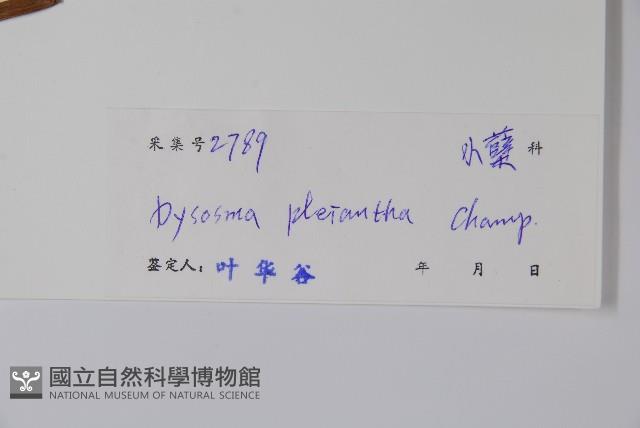 采集号 2789 小蘗 科
Dysosma pleiantha Champ.
鉴定人: 叶华谷 年 月 日
國立自然科學博物館
NATIONAL MUSEUM OF NATURAL SCIENCE